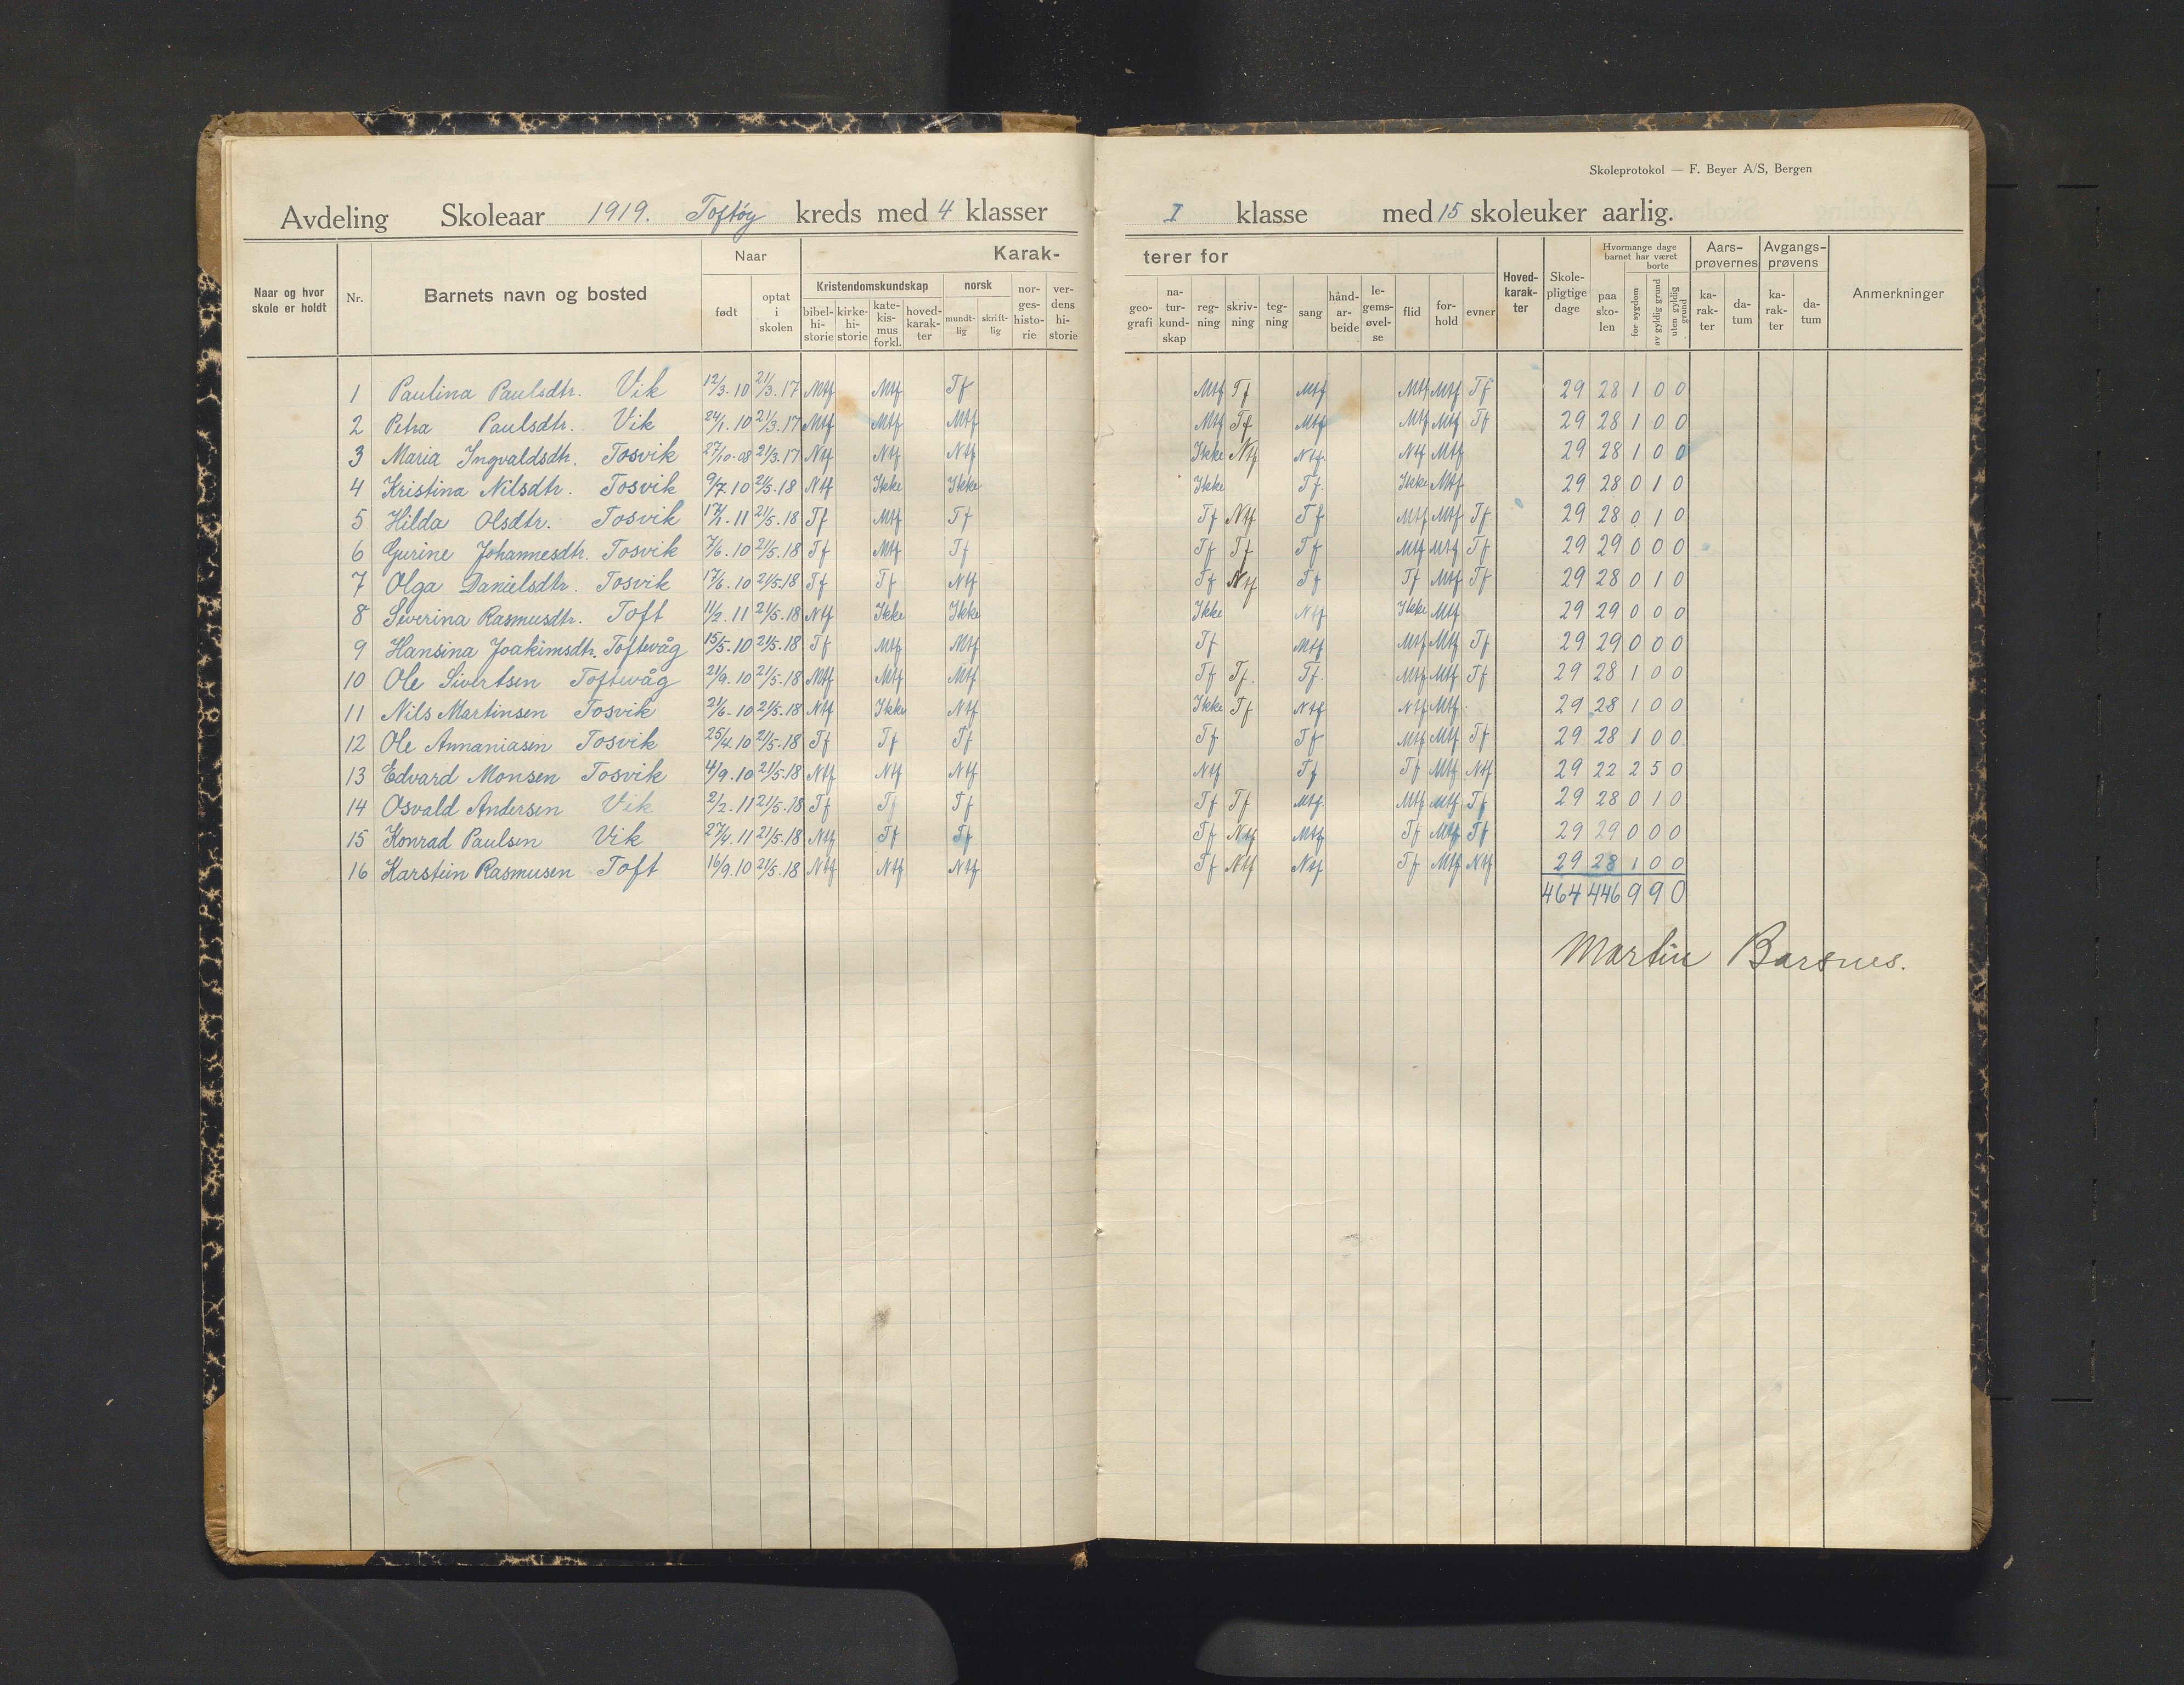 Skoleprotokol — F. Beyer A/S, Bergen
Avdeling Skoleaar 1919. Toftøy kreds med 4 klasser I klasse med 15 skoleuker aarlig.
Naar og hvor skole er holdt Nr. Barnets navn og bosted Naar født optat i skolen Karakterer for Kristendomskundskap bibelhistorie kirkehistorie katekismus forkl. hovedkarakter norsk mundtlig skriftlig norgeshistorie verdens historie geografi naturkundskap regning skrivning tegning sang håndarbeide legemsøvelse flid forhold evner Hovedkarakter Skolepligtige dage Hvormange dage barnet har været paa skolen borte for sygdom av gyldig grund uten gyldig grund Aarsprøvernes karakter datum Avgangsprøvens karakter datum Anmerkninger
1 Paulina Paulsdtr. Vik 12/3.10 21/3.17 Mtf Mtf Tf Mtf Tf Mtf Mtf Mtf Tf 29 28 1 0 0
2 Petra Paulsdtr. Vik 24/1.10 21/3.17 Mtf Mtf Mtf Mtf Tf Mtf Mtf Mtf Tf 29 28 1 0 0
3 Maria Ingvaldsdtr. Tosvik 27/10-08 21/3.17 Ntf Ntf Ntf Ikke Ntf Ntf. Ntf Mtf 29 28 1 0 0
4 Kristina Nilsdtr. Tosvik 9/7.10 21/5.18 Ntf Ikke Ikke Ikke Tf. Ikke Mtf 29 28 0 1 0
5 Hilda Olsdtr. Tosvik 17/1.11 21/5.18 Tf Mtf Tf Tf Ntf Tf Mtf Mtf Tf 29 28 0 1 0
6 Gurine Johannesdtr. Tosvik 7/6.10 21/5.18 Tf Mtf Tf Tf Tf Tf Mtf Mtf Tf 29 29 0 0 0
7 Olga Danielsdtr. Tosvik 17/6.10 21/5.18 Tf Tf Ntf Tf Ntf Tf Tf Mtf Tf 29 28 0 1 0
8 Severina Rasmusdtr. Toft 11/2.11 21/5.18 Ntf Ikke Ikke Ikke Ntf Ikke Mtf 29 29 0 0 0
9 Hansina Joakimsdtr. Toftevåg 15/5.10 21/5.18 Tf Mtf Mtf Tf Mtf Mtf Mtf Tf 29 29 0 0 0
10 Ole Sivertsen Toftevåg 21/9.10 21/5.18 Mtf Mtf Mtf Tf Tf. Tf. Mtf Mtf Tf 29 28 1 0 0
11 Nils Martinsen Tosvik 21/6-10 21/5.18 Ntf Ikke Ntf Ikke Tf Ntf Ntf Mtf 29 28 1 0 0
12 Ole Annaniasen Tosvik 25/4.10 21/5.18 Tf Tf Tf Tf Tf Mtf Mtf Tf 29 28 1 0 0
13 Edvard Monsen Tosvik 4/9.10 21/5.18 Ntf Ntf Ntf Ntf Tf Tf Mtf Ntf 29 22 2 5 0
14 Osvald Andersen Vik 2/2.11 21/5.18 Tf Tf Tf Tf Tf Mtf. Mtf Mtf Tf 29 28 0 1 0
15 Konrad Paulsen Vik 27/4.11 21/5.18 Ntf Tf Tf Tf Ntf Mtf Tf Mtf Tf 29 29 0 0 0
16 Karstein Rasmusen Toft 16/9.10 21/5.18 Ntf Ntf Ntf Tf Ntf Ntf Tf Mtf Ntf 29 28 1 0 0
464 446 9 9 0
Martin Barsnes.